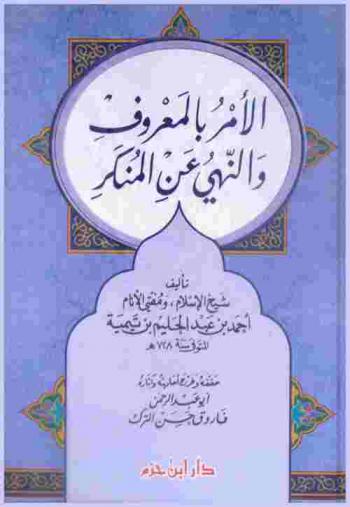 الأَمْرُ بِالمَعْرُوفِ
وَالنَّهْيُ عَنِ المُنكَرِ
تأليف
شيخ الإسلام، ومفتي الأنام
أحمد بن عبد الحليم بن تيمية
المتوفى سنة ٧٢٨ هـ
حققه وخرج أحاديثه وآثاره
أبو عبد الرحمن
فاروق حسن الترك
دار ابن حزم